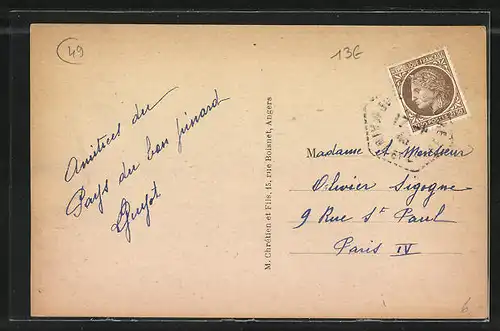 49
13€
Amitiés du
Pays du bon pinard
Guyot
M. Chrétien et Fils, 15, rue Boisnet, Angers
Madame et Monsieur
Olivier Sigogne
9 Rue St Paul
Paris IV
6